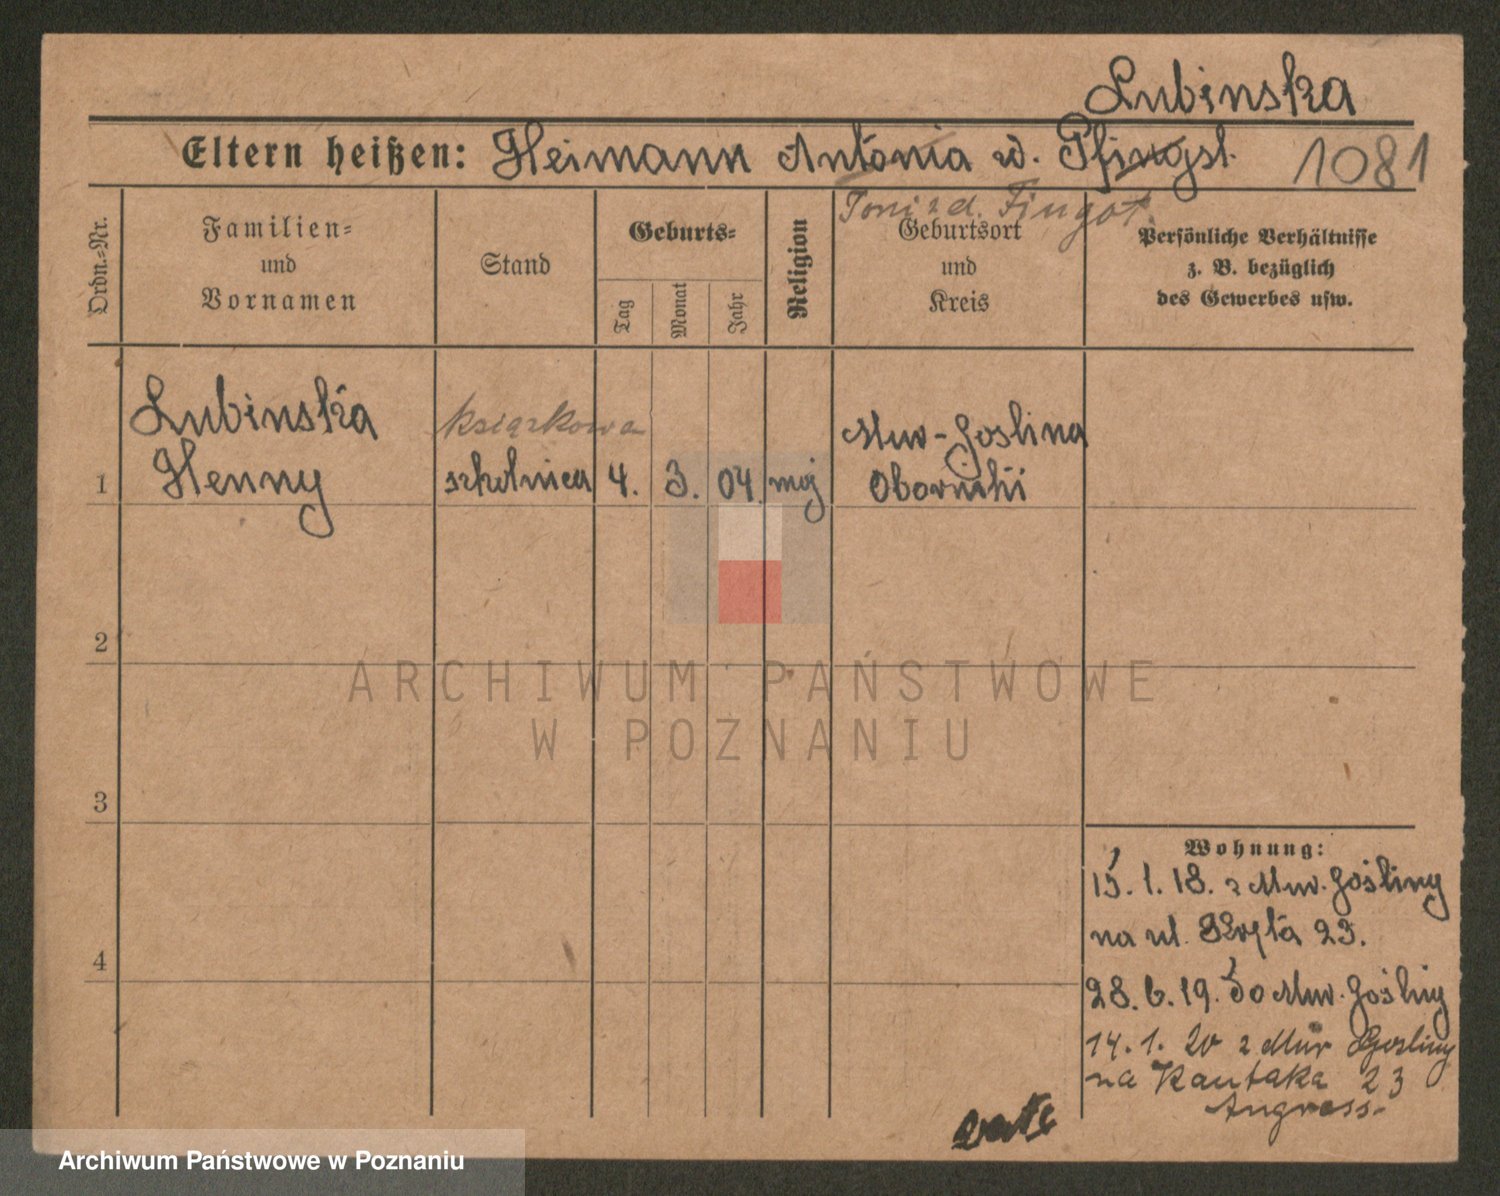 Lubinska
Eltern heißen: Heimann Antonia zd. Pfingst. 1081
Toni zd. Fingst.
Ordn.-Nr.
Familien-
und
Vornamen
Stand
Geburts-
Tag
Monat
Jahr
Religion
Geburtsort
und
Kreis
Persönliche Verhältnisse
z. B. bezüglich
des Gewerbes usw.
1
Lubinska
Henny
książkowa
szkolnica
4. 3. 04. moj
Mur-Goslina
Oborniki
2
3
4
Wohnung:
15. 1. 18. z Mur. Gośliny
na ul. 23.
28. 6. 19. do Mur. Gośliny
14. 1. 20 z Mur Gosliny
na Kantaka 23
Angress-
ARCHIWUM PAŃSTWOWE
W POZNANIU
Archiwum Państwowe w Poznaniu